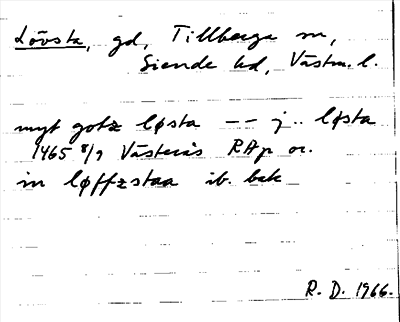 Lövsta, gd, Tillberga sn,
Siende hd, Västm. l.
myt gotz løsta -- j.. løsta
1465 8/9 Västerås RAp or.
in løffzstaa ib. bak
R. D. 1966.